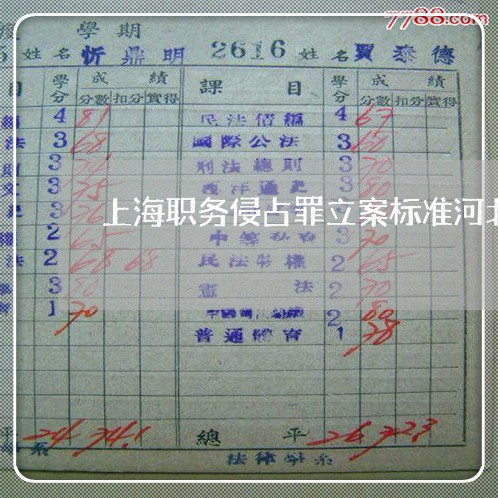 7788.com
學期
姓名 忻鼎明 2616 姓名 賈泰德
目 學分 成績 課目 學分 成績
分數 扣分 實得 分數 扣分 實得
4 81 民法債編 4 67
法 3 68 國際公法 3 60
3 刑法總則 3 70
3 75 西洋通史 3 80
上海职务侵占罪立案标准河北
2 65 3 70
法 2 68 68 民法物權 2 65
3 80 憲法 2 70
1 70 2 80
普通體育 1 78
平 24 74.1 總平 26 72.3
系 法律學系